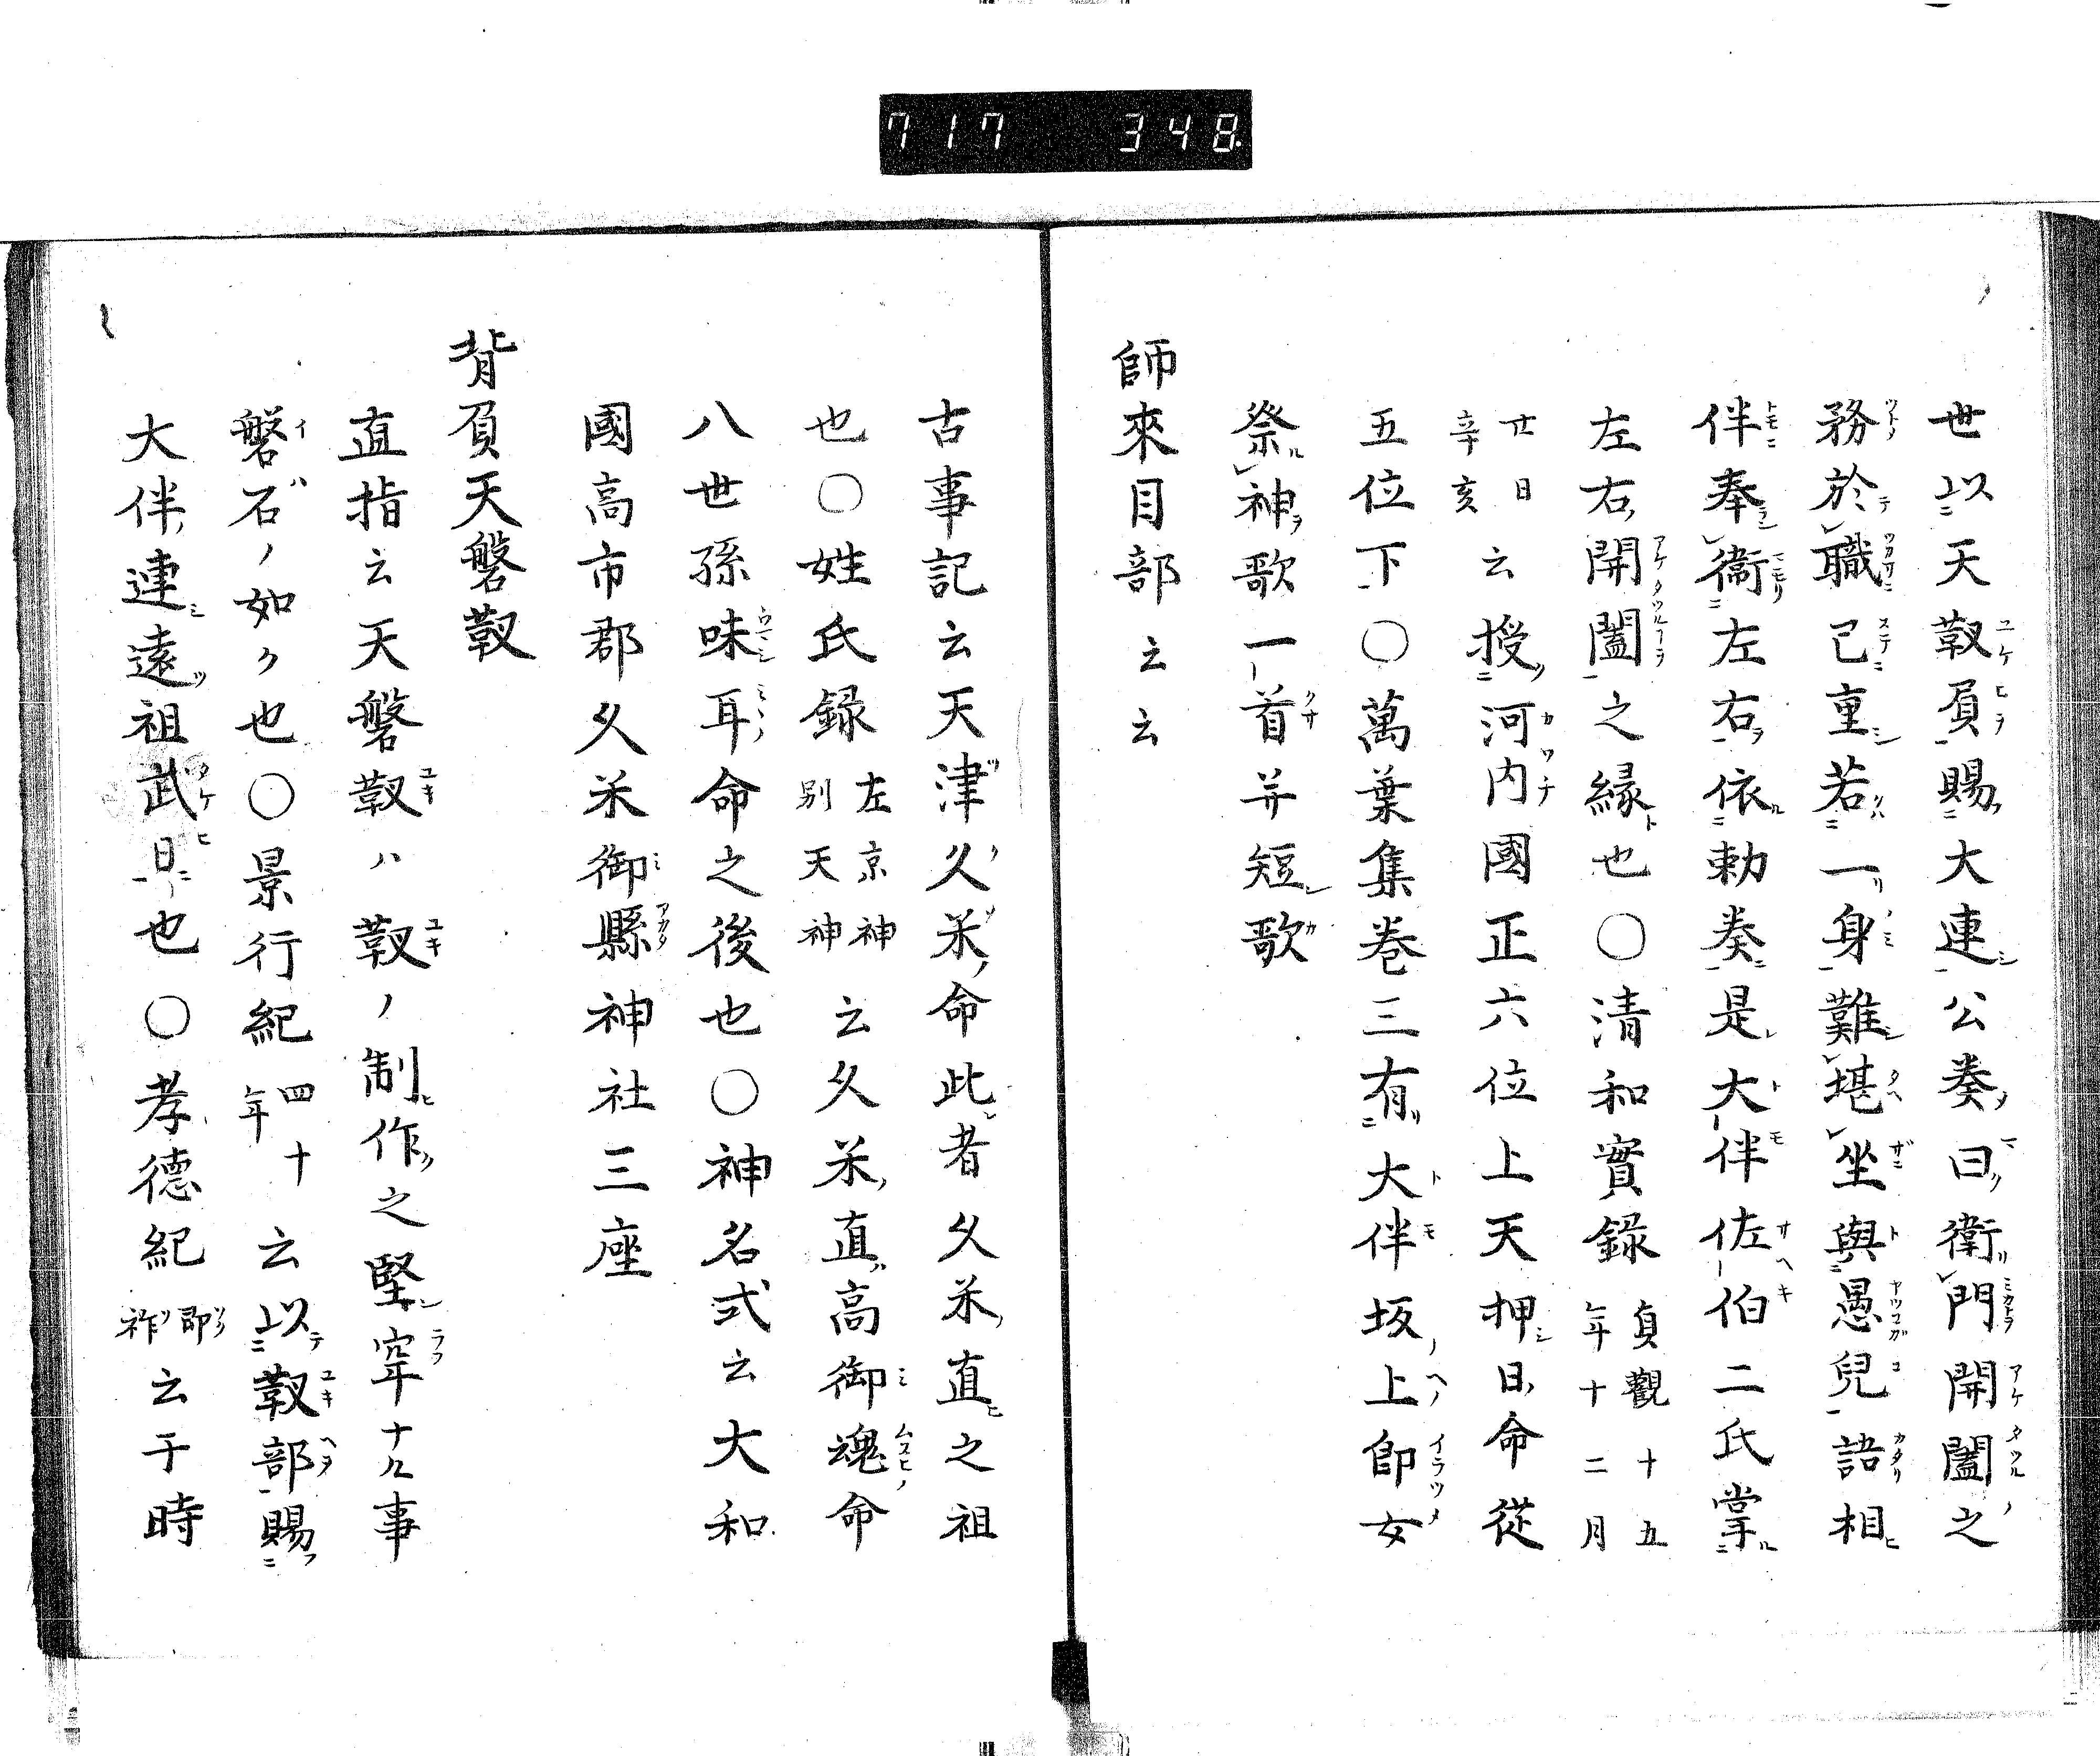 717 348
世以天靫負賜大連公奏曰衛門開闔之
務於職已重若一身難堪坐與愚兒語相
伴奉衞左右依勅奏是大伴佐伯二氏掌
左右開闔之縁也〇清和實録貞觀十五年十二月
廿日辛亥云授河内國正六位上天押日命從
五位下〇萬葉集巻三有大伴坂上郎女
祭神歌一首并短歌
師來目部云云
古事記云天津久米命此者久米直之祖
也〇姓氏録左京神別天神云久米直高御魂命
八世孫味耳命之後也〇神名式云大和
國高市郡久米御縣神社三座
背負天磐靫
直指云天磐靫ハ靫ノ制作之堅牢ナル事
磐石ノ如ク也〇景行紀四十年云以靫部賜
大伴連遠祖武日也〇孝德紀即祚云于時